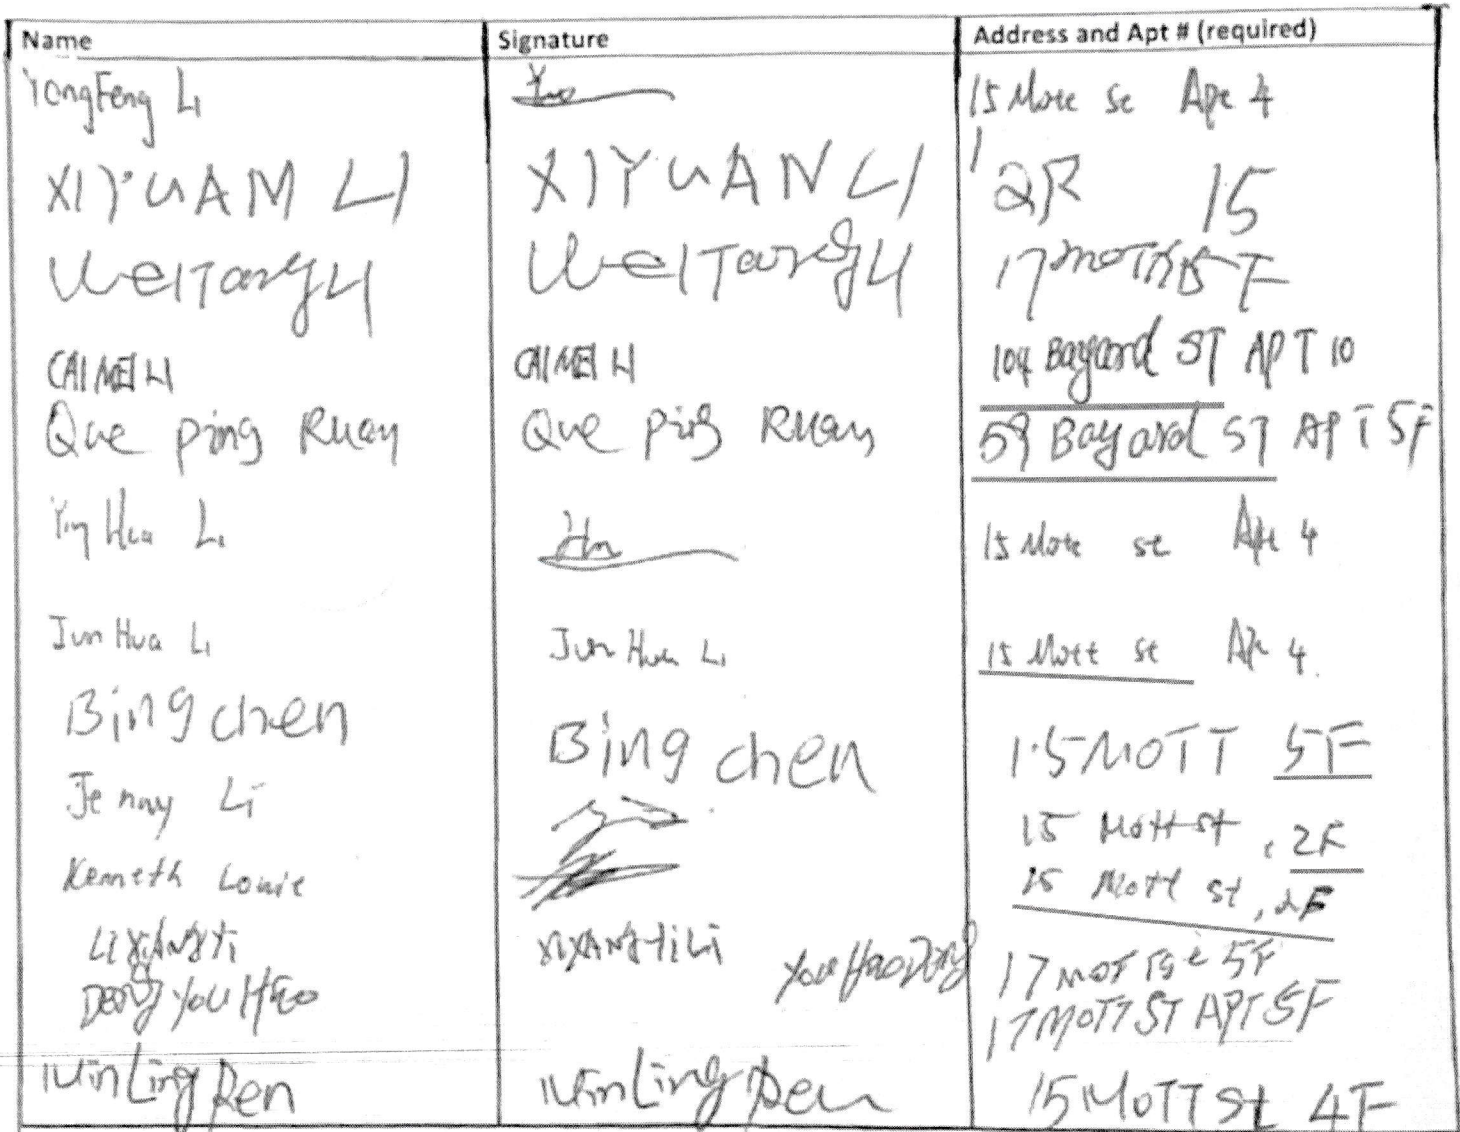 Name Signature Address and Apt # (required)
YongFeng Li 15 Mott St Apt 4
XIYUAM LI XIYUAN LI 2R 15
WeITang LI WeITang LI 17 moTT 5F
CAI MEI LI CAI MEI LI 104 Bayard ST APT 10
Que Ping Ruan Que Ping Ruan 59 Bayard ST APT 5F
Yin Hua Li 15 Mott st Apt 4
Jun Hua Li Jun Hua Li 15 Mott st Apt 4.
Bing chen Bing chen 15 MOTT 5F
Jenny Li 15 Mott st, 2F
Kenneth Louie 15 Mott st, 2F
LI XIANGYI XIANGYI LI 17 MOTT 5F
DENG YOU HAO You Hao Deng 17 MOTT ST APT 5F
Ling Ren Ling Ren 15 MOTT St 4F